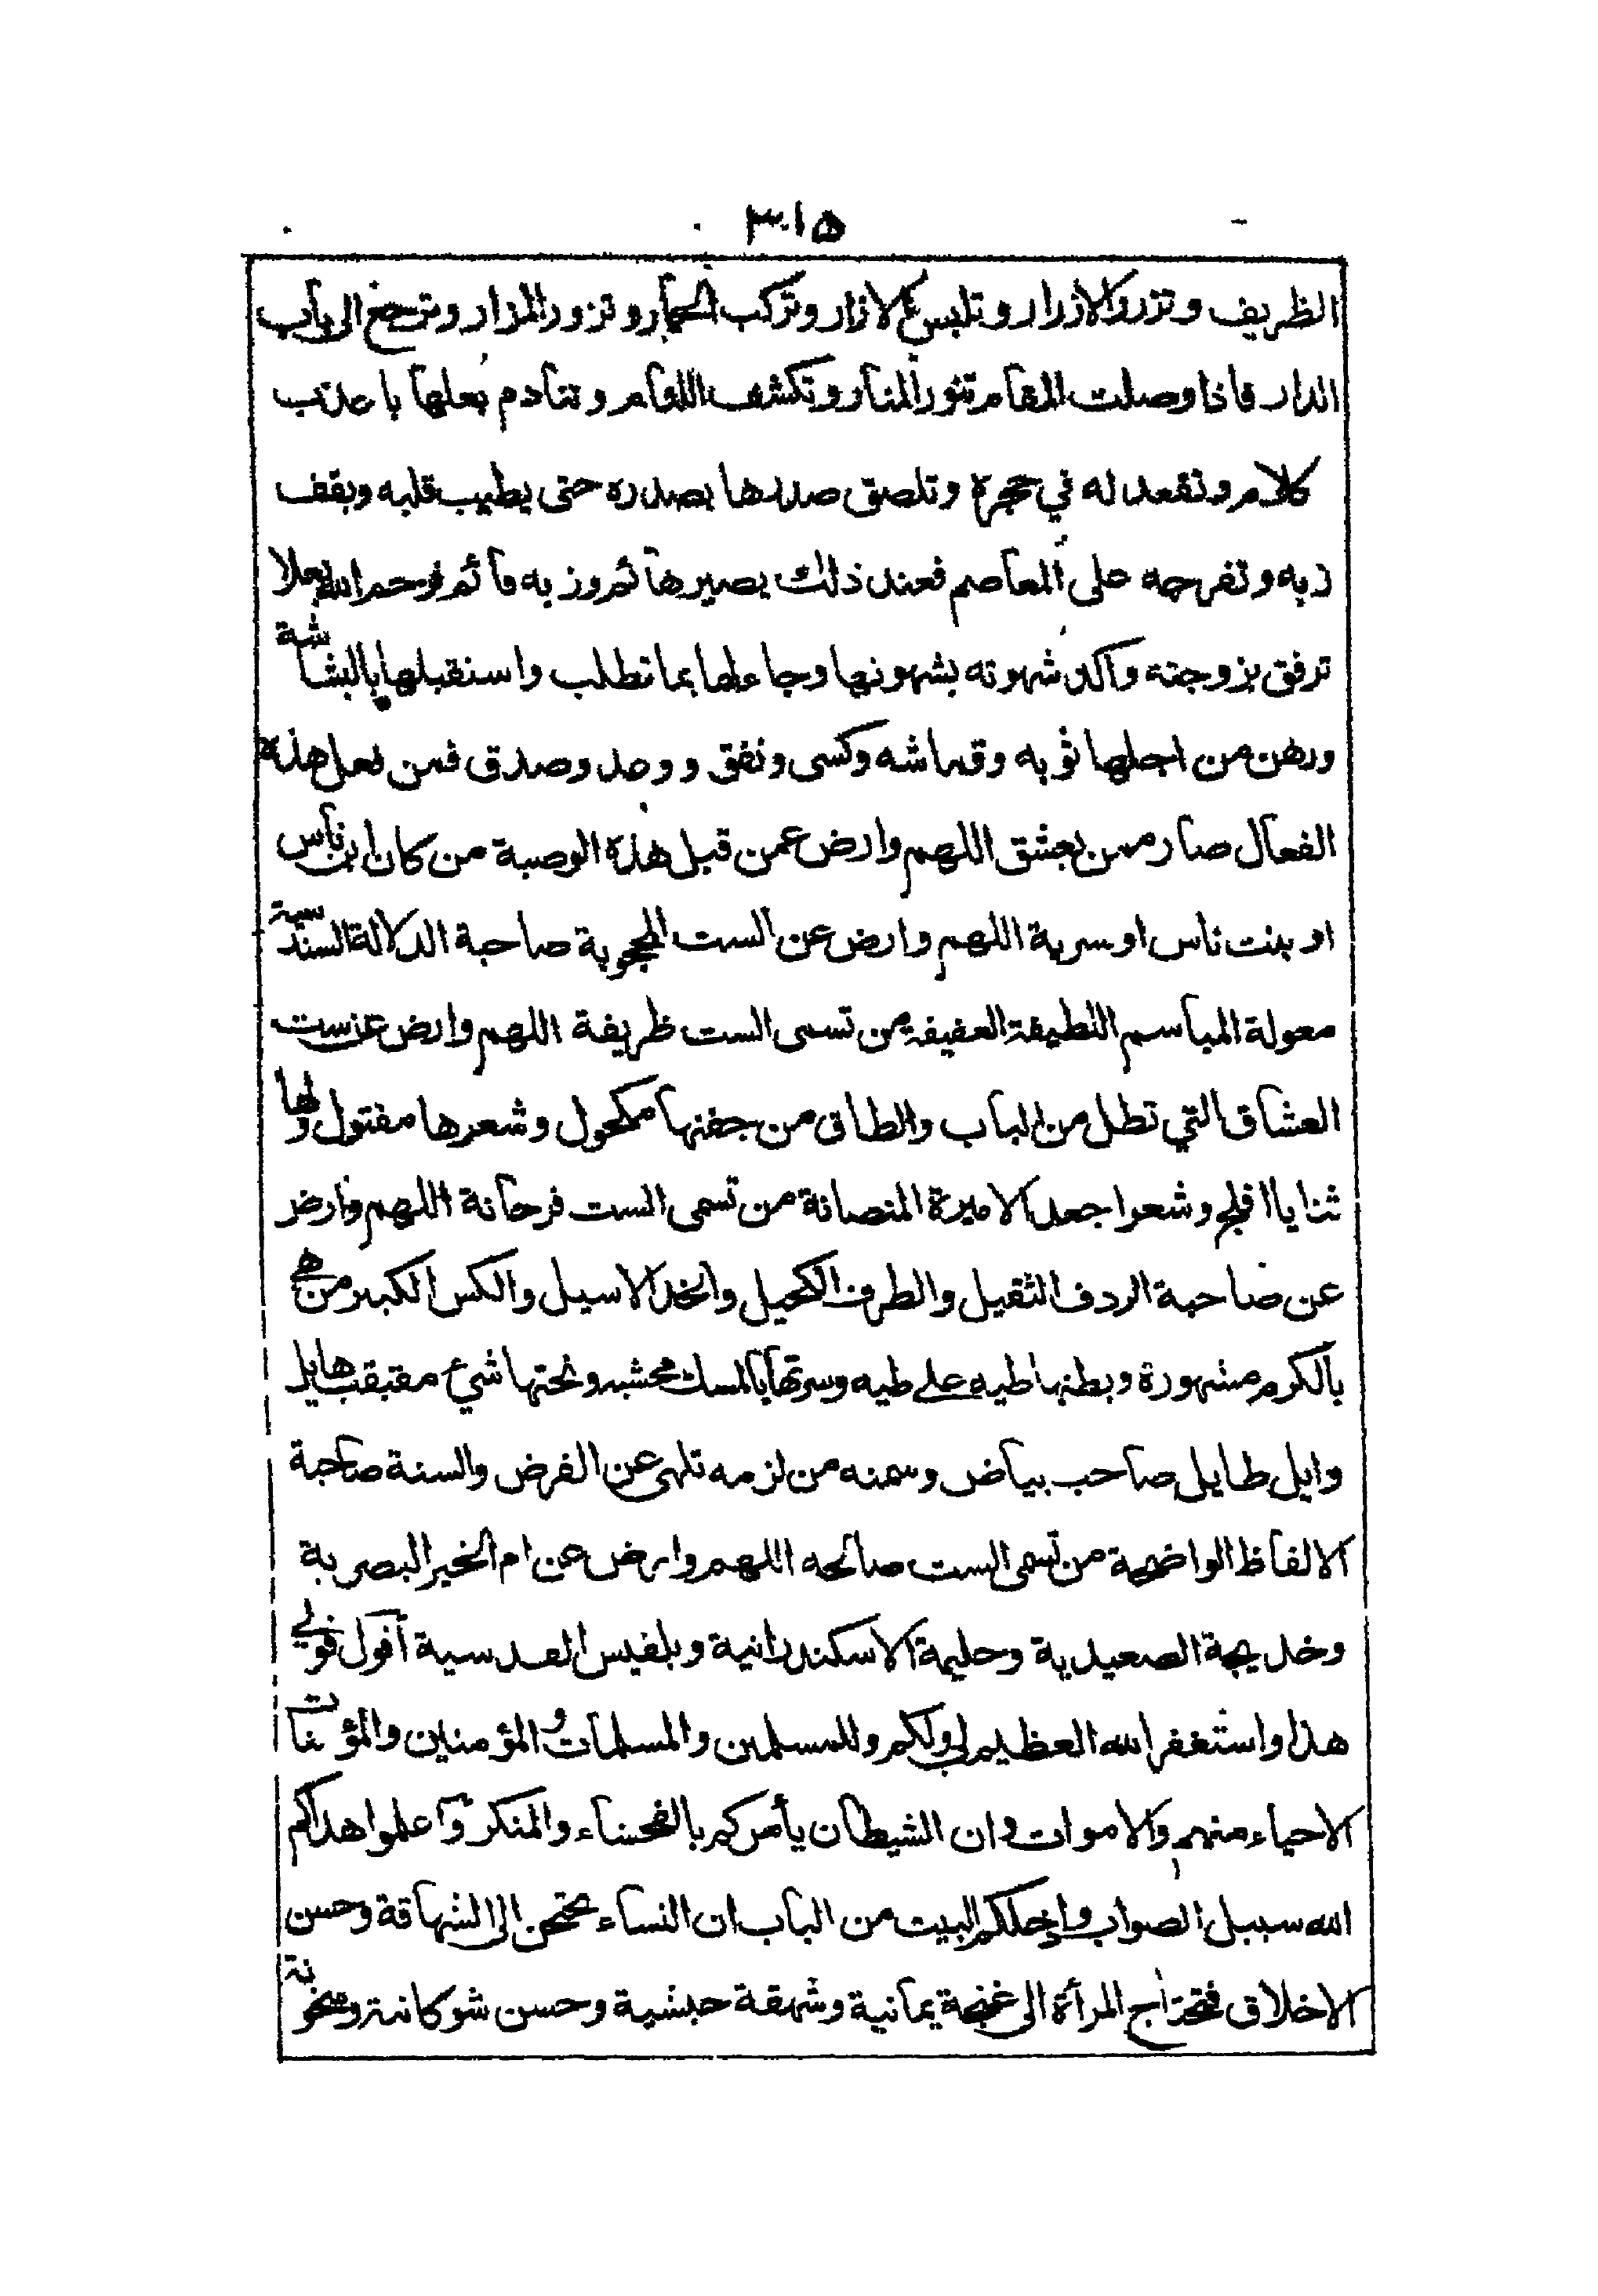 ٣١٥
الظريف وتزرر الازرار وتلبس الازار وتركب الحمار وتزور المزار وترجع الى باب
الدار فاذا وصلت المقام تنور المنار وتكشف اللثام وتنادم بعلها باعذب
كلام وتقعد له في حجره وتلصق صدرها بصدره حتى يطيب قلبه ويقف
زبه وتفرجه على المعاصم فعند ذلك يصيرها ثم روز به ما ثم فرحم الله بعلا
ترفق بزوجته وأكد شهوته بشهوتها وجاء لها بما تطلب واستقبلها بالبشاشة
ورهن من اجلها ثوبه وقماشه وكسى ونفق ووعد وصدق فمن فعل هذه
الفعال صار ممن يعشق اللهم وارض عمن قبل هذه الوصية من كان ابن ناس
او بنت ناس او سرية اللهم وارض عن الست المحجوبة صاحبة الدلالة السندسية
معولة المباسم اللطيفة العفيفة من تسمى الست ظريفة اللهم وارض عن ست
العشاق التي تطل من الباب والطاق من جفنها مكحول وشعرها مفتول ولها
ثنايا افلج وشعرا جعد الاميرة المنصانة من تسمى الست فرحانة اللهم وارض
عن صاحبة الردف الثقيل والطرف الكحيل والخد الاسيل والكس الكبير من هي
بالكرم مشهورة وبطنها طيه على طيه وسرتها بالمسك محشيه وتحتها شيء مقبقب هايل
وايل طايل صاحب بياض وسمنه من لزمه تلهى عن الفرض والسنة صاحبة
الالفاظ الواضحة من تسمى الست صالحه اللهم وارض عن ام الخير البصرية
وخديجة الصعيدية وحليمة الاسكندرانية وبلقيس القدسية أقول قولي
هذا واستغفر الله العظيم لي ولكم وللمسلمين والمسلمات والمؤمنين والمؤمنات
الاحياء منهم والاموات وان الشيطان يأمركم بالفحشاء والمنكر واعلموا هداكم
الله سبيل الصواب وادخلكم البيت من الباب ان النساء يحتجن الى الشهاقة وحسن
الاخلاق فتحتاج المرأة الى غنجة يمانية وشهقة حبشية وحسن شوكانته وسخونة